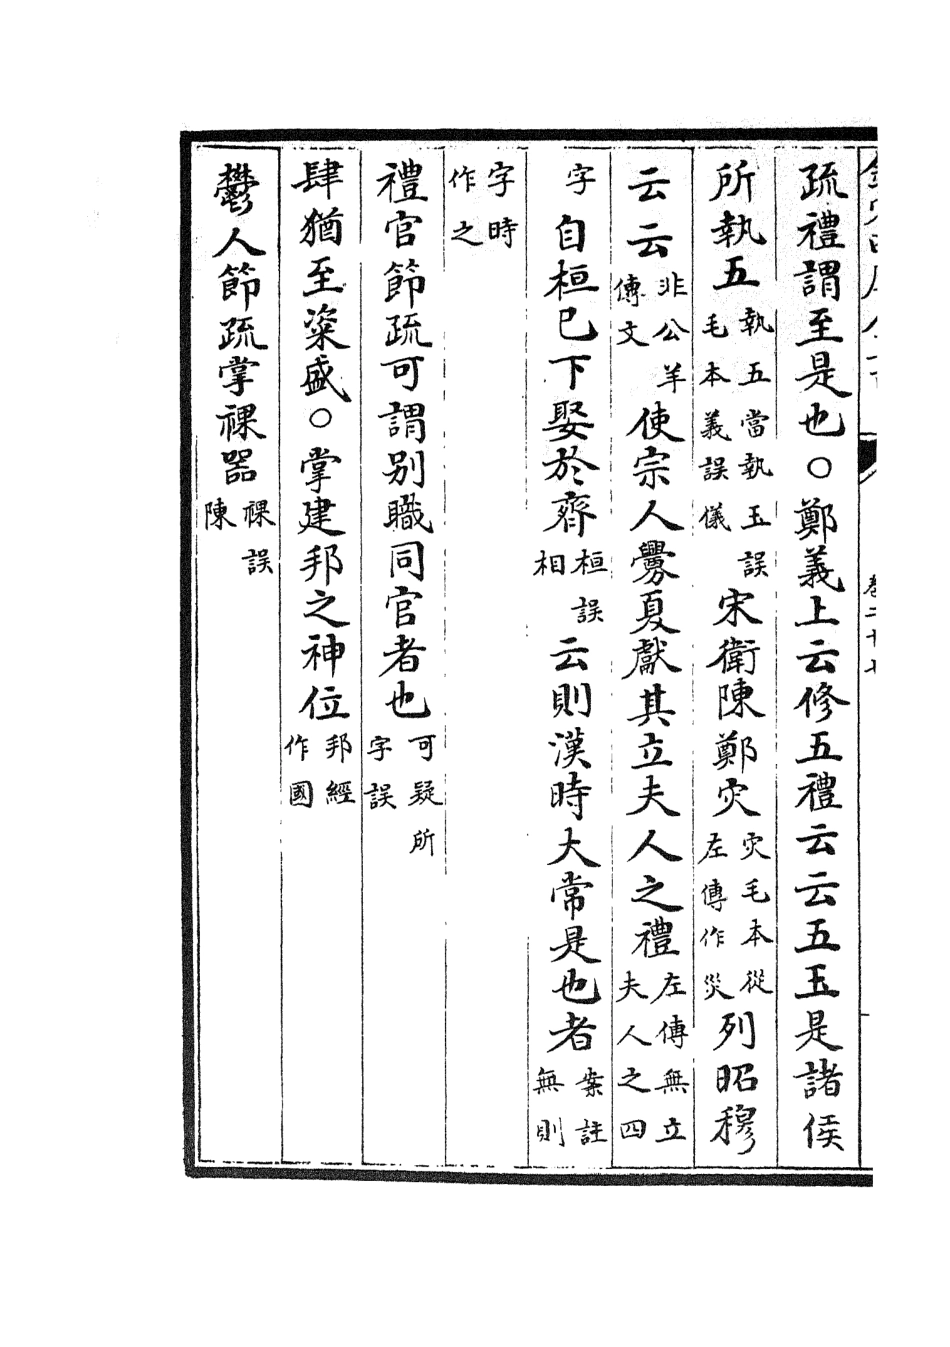 欽定四庫全書 卷二十七
疏禮謂至是也○鄭義上云修五禮云云五玉是諸侯
所執五執五當執玉誤毛本義誤儀宋衛陳鄭灾灾毛本從左傳作災列昭穆
云云非公羊傳文使宗人釁夏獻其立夫人之禮左傳無立夫人之四
字自桓已下娶於齊桓誤相云則漢時大常是也者案註無則
字時作之
禮官節疏可謂别職同官者也可疑所字誤
肆猶至粢盛○掌建邦之神位邦經作國
鬱人節疏掌祼器祼誤陳